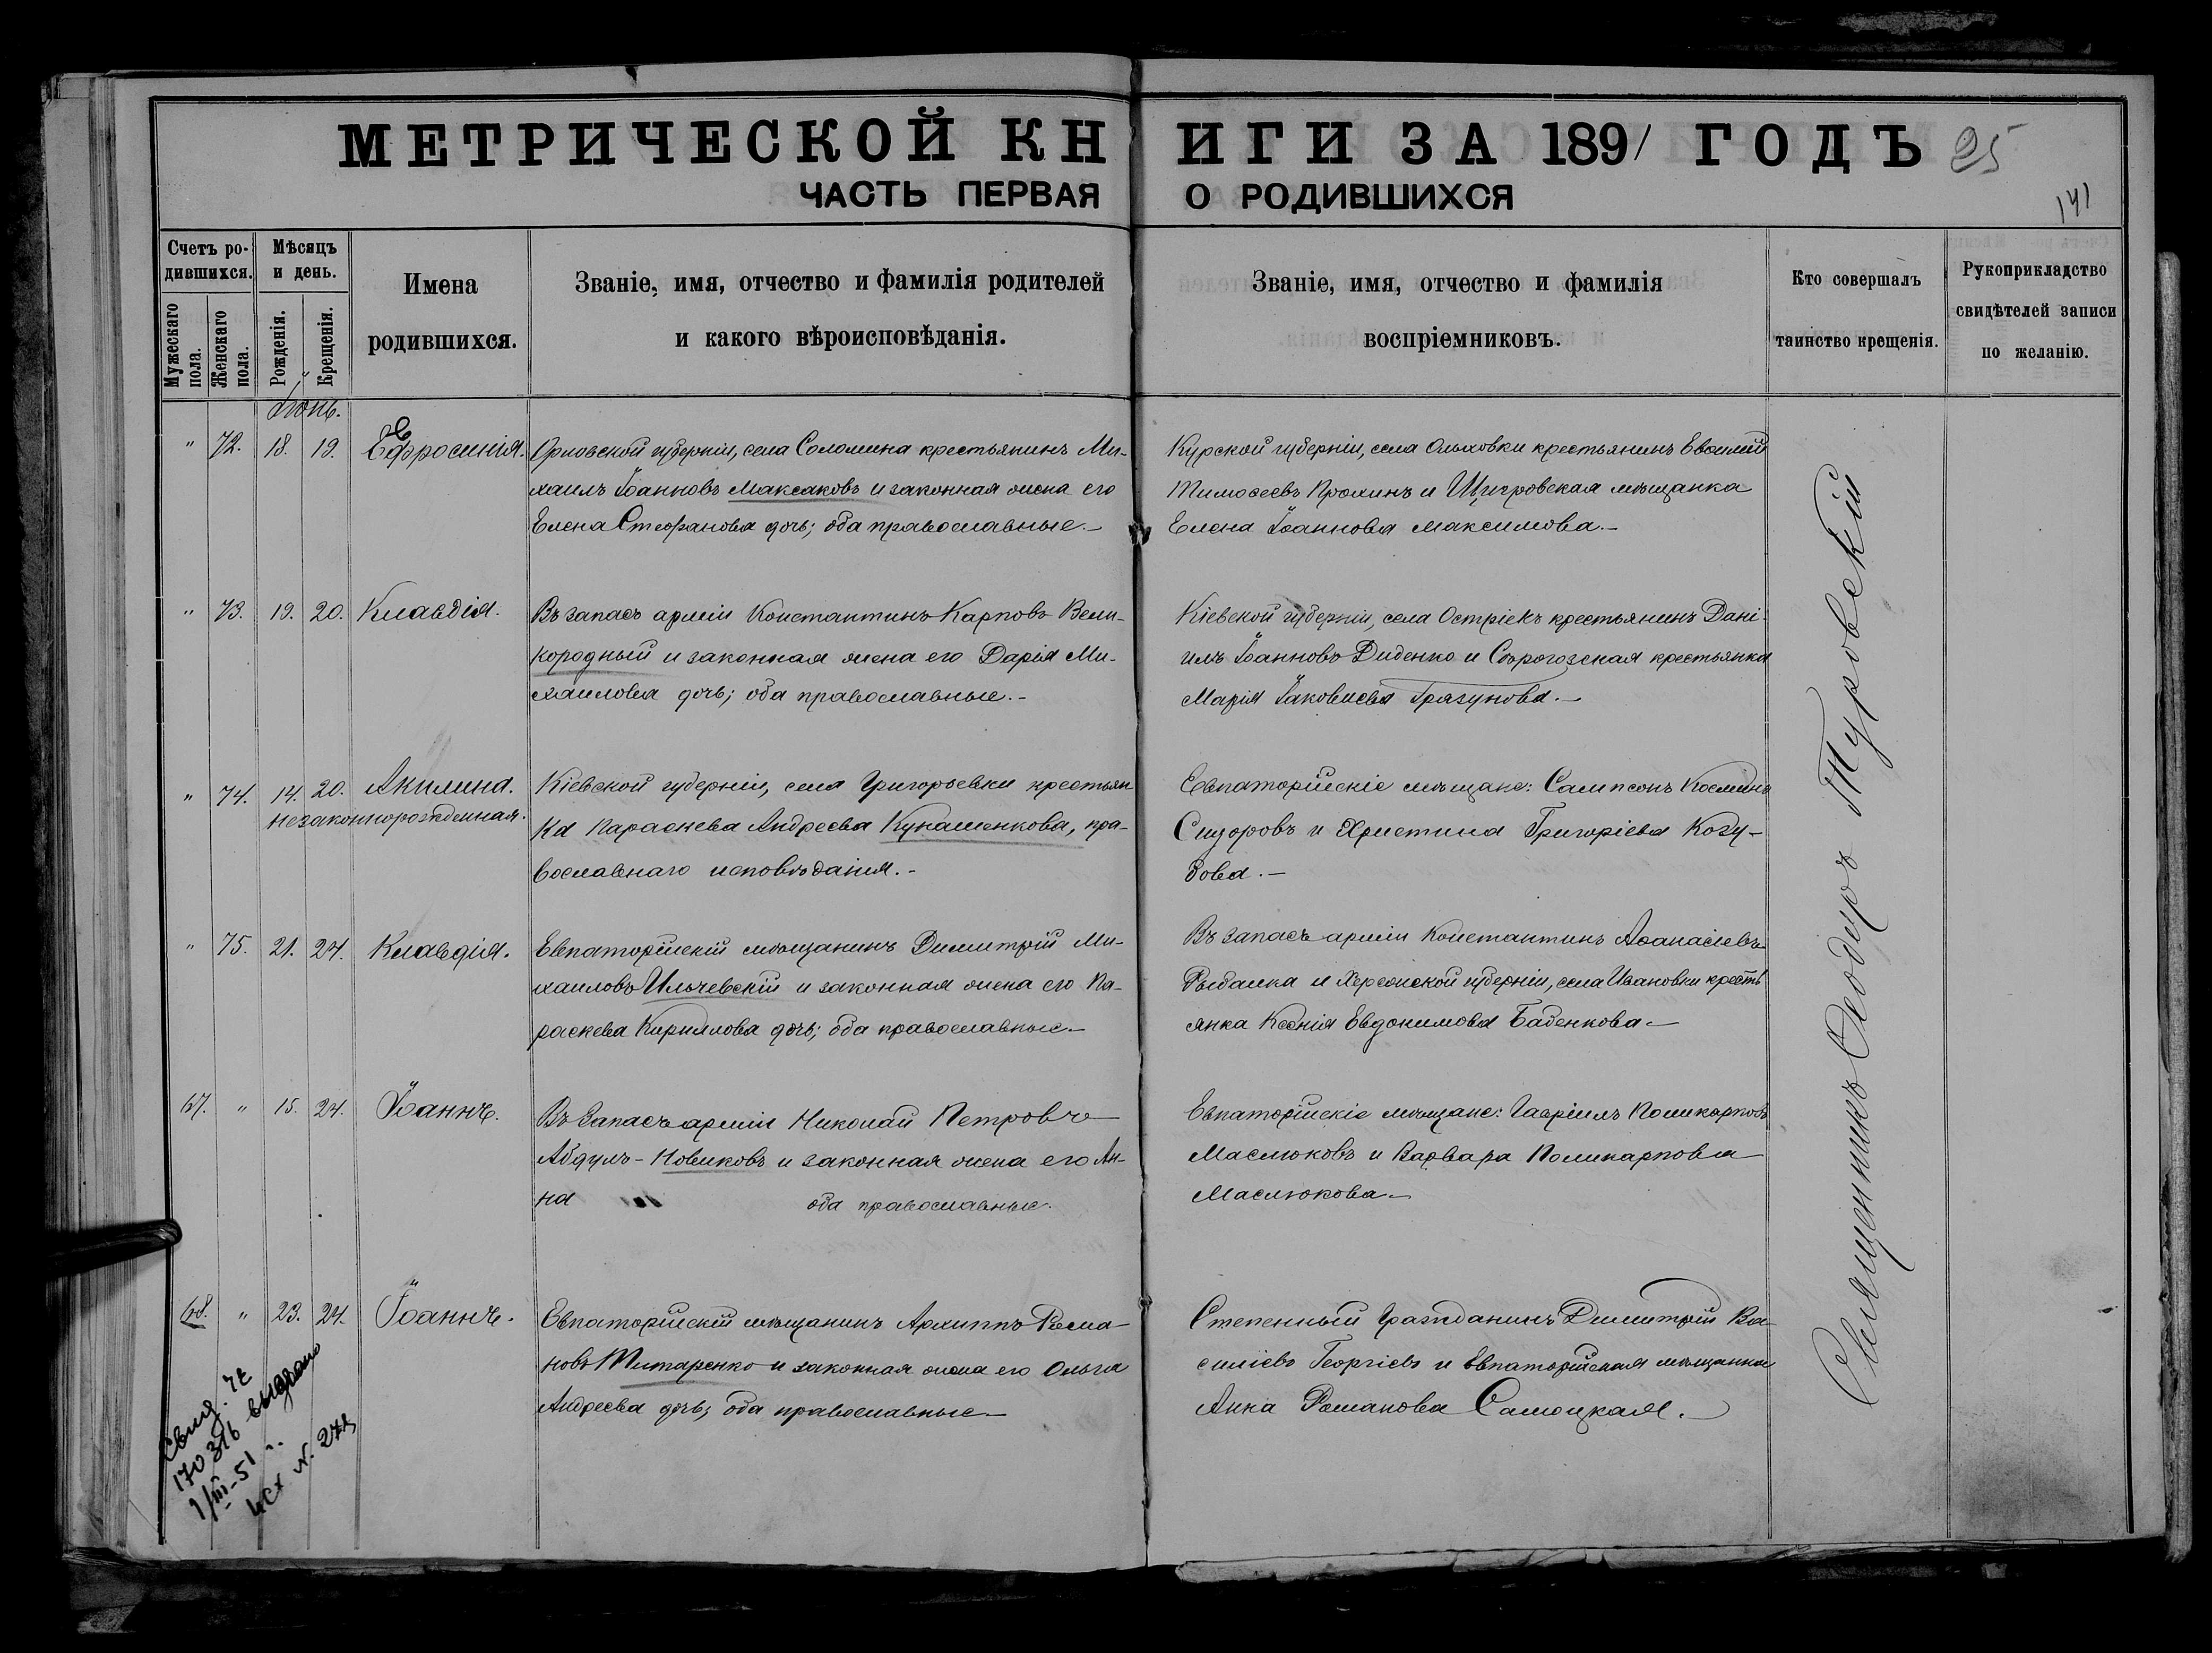 МЕТРИЧЕСКОЙ КНИГИ ЗА 1891 ГОДЪ 25
ЧАСТЬ ПЕРВАЯ О РОДИВШИХСЯ
141
Счетъ родившихся.
Мужескаго пола.
Женскаго пола.
Мѣсяцъ и день.
Рожденія.
Крещенія.
Имена
родившихся.
Званіе, имя, отчество и фамилія родителей
и какого вѣроисповѣданія.
Званіе, имя, отчество и фамилія
воспріемниковъ.
Кто совершалъ
таинство крещенія.
Рукоприкладство
свидѣтелей записи
по желанію.
Іюнь.
" 72. 18. 19. Ефросинія.
Орловской губерніи, села Соломина крестьянинъ Ми-
хаилъ Іоанновъ Максаковъ и законная жена его
Елена Стефанова дочь; оба православные.-
Курской губерніи, села Ольховки крестьянинъ Евѳимій
Тимоѳеевъ Пронинъ и Щигровская мѣщанка
Елена Іоаннова Максимова.-
" 73. 19. 20. Клавдія.
Въ запасѣ арміи Константинъ Карповъ Вели-
кородный и законная жена его Дарія Ми-
хаилова дочь; оба православные.-
Кіевской губерніи, села Острiекъ крестьянинъ Дані-
илъ Іоанновъ Диденко и крестьянка
Марія Іаковлева Грязунова.-
" 74. 14. 20. Акилина.
незаконнорожденная.
Кіевской губерніи, села Григорьевки крестьян-
ка Параскева Андреева Кунашенкова, пра-
вославнаго исповѣданія.-
Евпаторійскіе мѣщане: Сампсонъ Космина
Сидоровъ и Христина Григоріева Козу-
бова.-
" 75. 21. 24. Клавдія.
Евпаторійскій мѣщанинъ Димитрій Ми-
хаиловъ Ильчевскій и законная жена его Па-
раскева Кириллова дочь; оба православные.-
Въ запасѣ арміи Константинъ Аѳанасіевъ
Рыбалка и Херсонской губерніи, села Ивановки кресть
янка Ксенія Евдокимова Баденкова.-
67. " 15. 24. Іоаннъ.
Въ запасѣ арміи Николай Петровъ
Абдулъ-Новиковъ и законная жена его Ан-
на оба православные.
Евпаторійскіе мѣщане: Гавріилъ Поликарповъ
Маслюковъ и Варвара Поликарпова
Маслюкова.-
68. " 23. 24. Іоаннъ.
Евпаторійскій мѣщанинъ Архиппъ Рома-
новъ Титаренко и законная жена его Ольга
Андреева дочь; оба православные.-
Степенный гражданинъ Димитрій Ва-
силіевъ Георгіевъ и Евпаторійская мѣщанка
Анна Романова Самоцкая.-
Священникъ Ѳеодоръ Туровскій
Свид. ЧЕ
170316 выдано
1/III-51 г.
исх N.